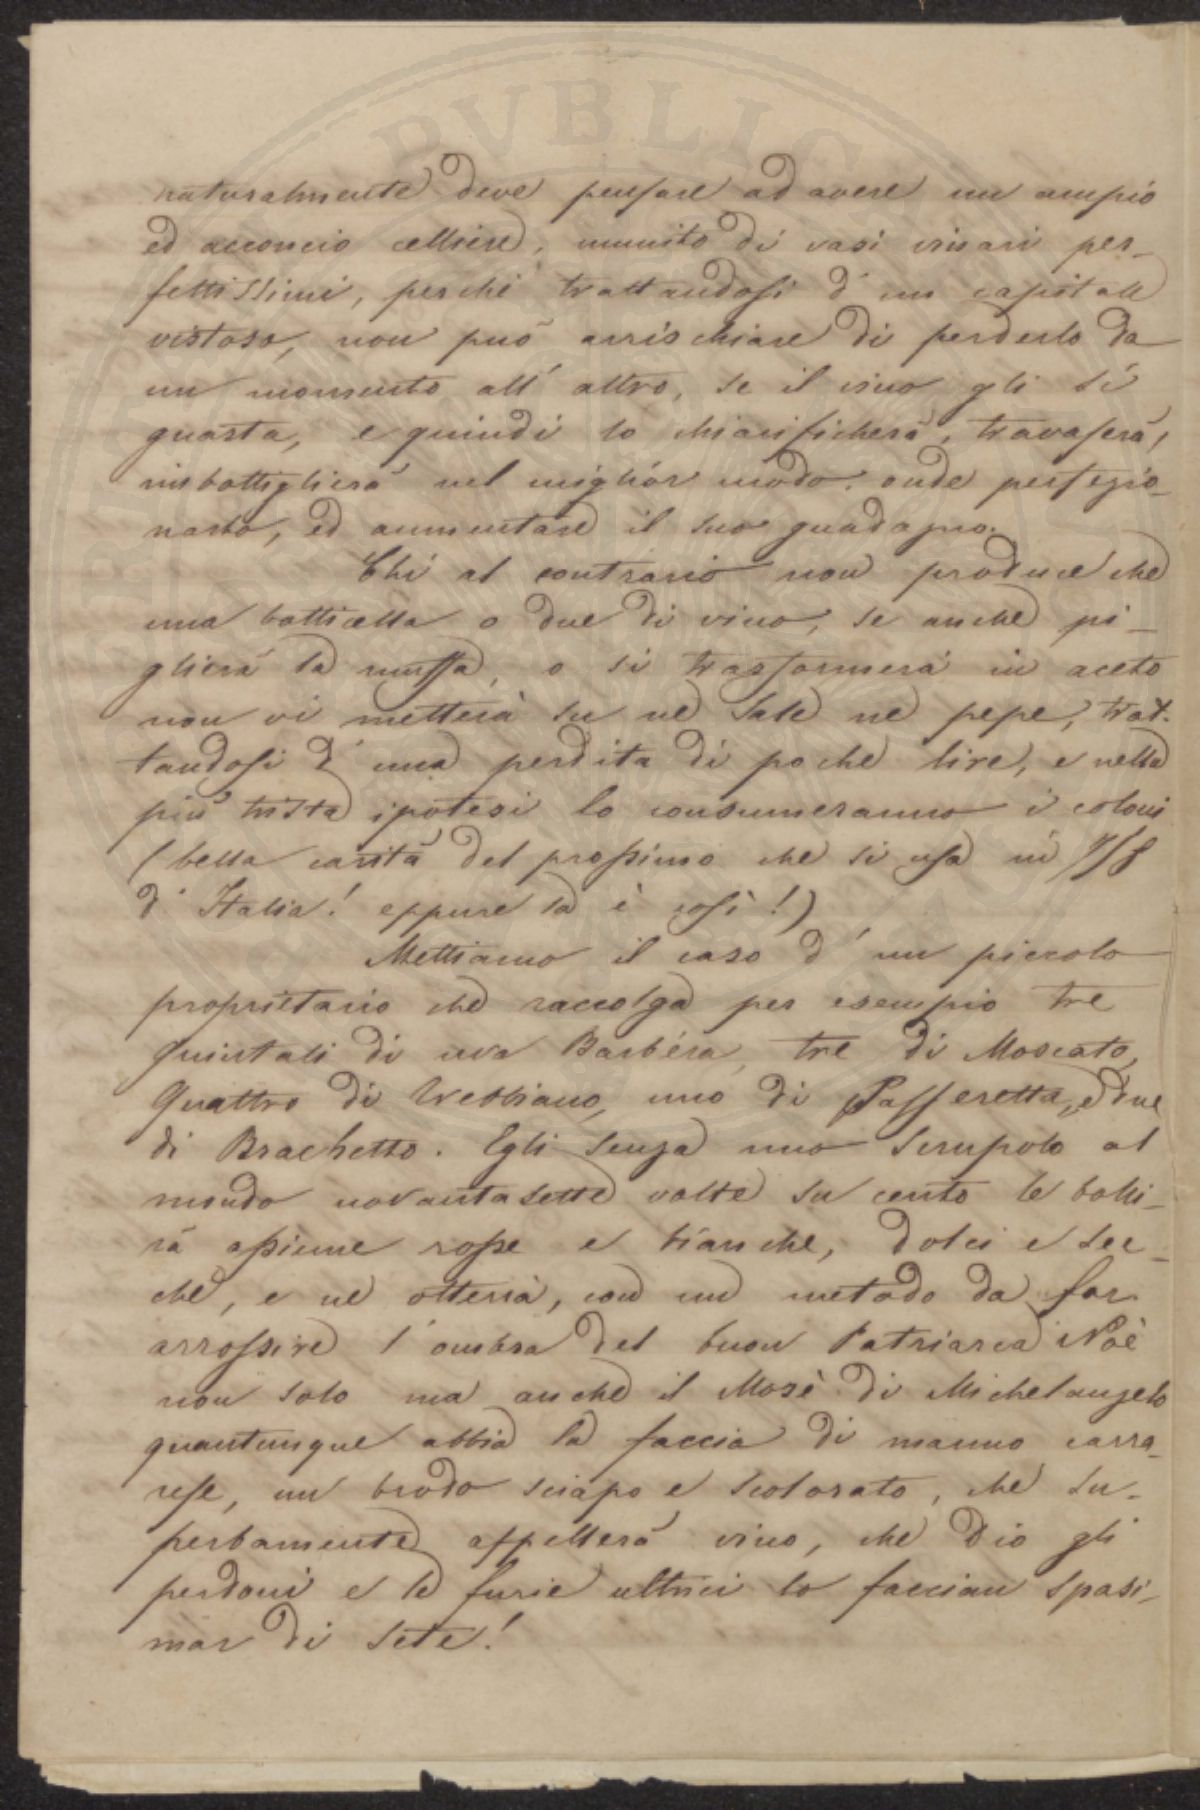 naturalmente deve pensare ad avere un ampio
ed acconcio celliere, munito di vasi vinari per-
fettissimi, perchè trattandosi d'un capitale
vistoso, non può arrischiare di perderlo da
un momento all'altro, se il vino gli si
guasta, e quindi lo chiarificherà, travaserà,
imbottiglierà nel miglior modo onde perfezio-
narlo, ed aumentare il suo guadagno.
Chi al contrario non produce che
una botticella o due di vino, se anche pi-
glierà la muffa, o si trasformerà in aceto
non vi metterà su nè sale nè pepe, trat-
tandosi d'una perdita di poche lire, e nella
più trista ipotesi lo consumeranno i coloni
(bella carità del prossimo che si usa in 7/8
d'Italia! eppure la è così!)
Mettiamo il caso d'un piccolo
proprietario che raccolga per esempio tre
quintali di uva Barbéra, tre di Moscato,
quattro di Trebbiano, uno di Passeretta, e due
di Brachetto. Egli senza uno scrupolo al
mondo novantasette volte su cento le bolli-
rà assieme rosse e bianche, dolci e sec-
che, e ne otterrà, con un metodo da far
arrossire l'ombra del buon Patriarca Noè
non solo ma anche il Mosè di Michelangelo
quantunque abbia la faccia di marmo carra-
rese, un brodo sciapo e scolorato, che su-
perbamente appellerà vino, che Dio gli
perdoni e le furie ultrici lo faccian spasi-
mar di sete!
PVBLICA